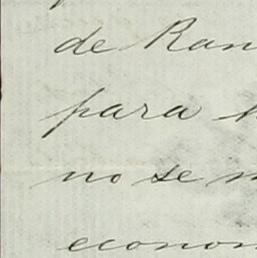 de Ran
para
no se
econom